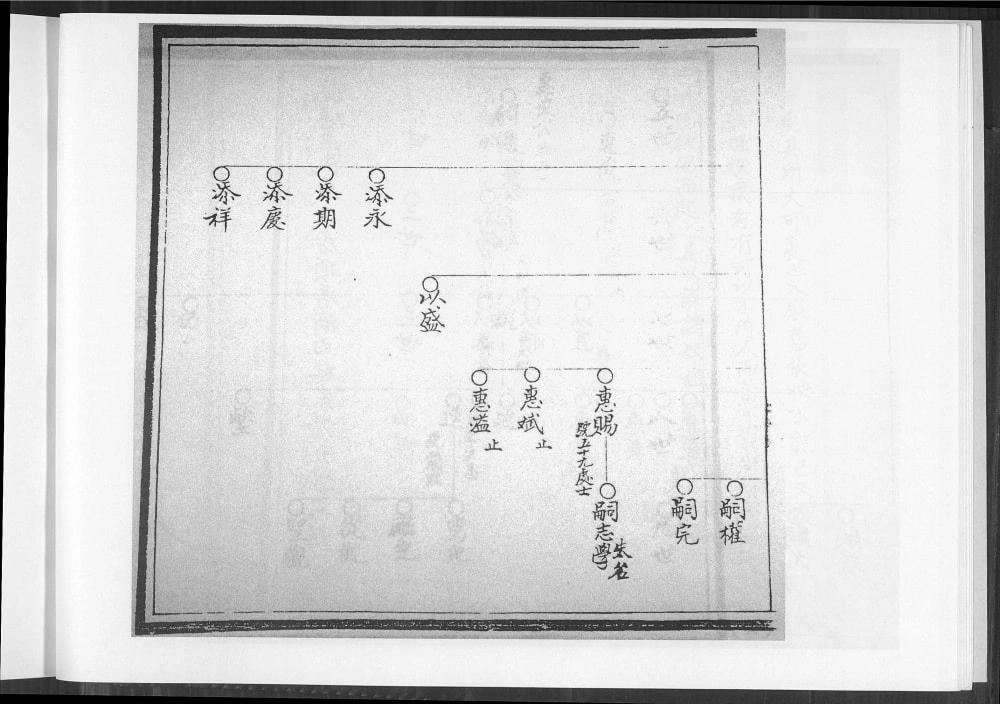 添永
添期
添慶
添祥
以盛
惠賜
號五十九處士
惠斌
止
惠溢
止
嗣權
嗣完
嗣志學
失名